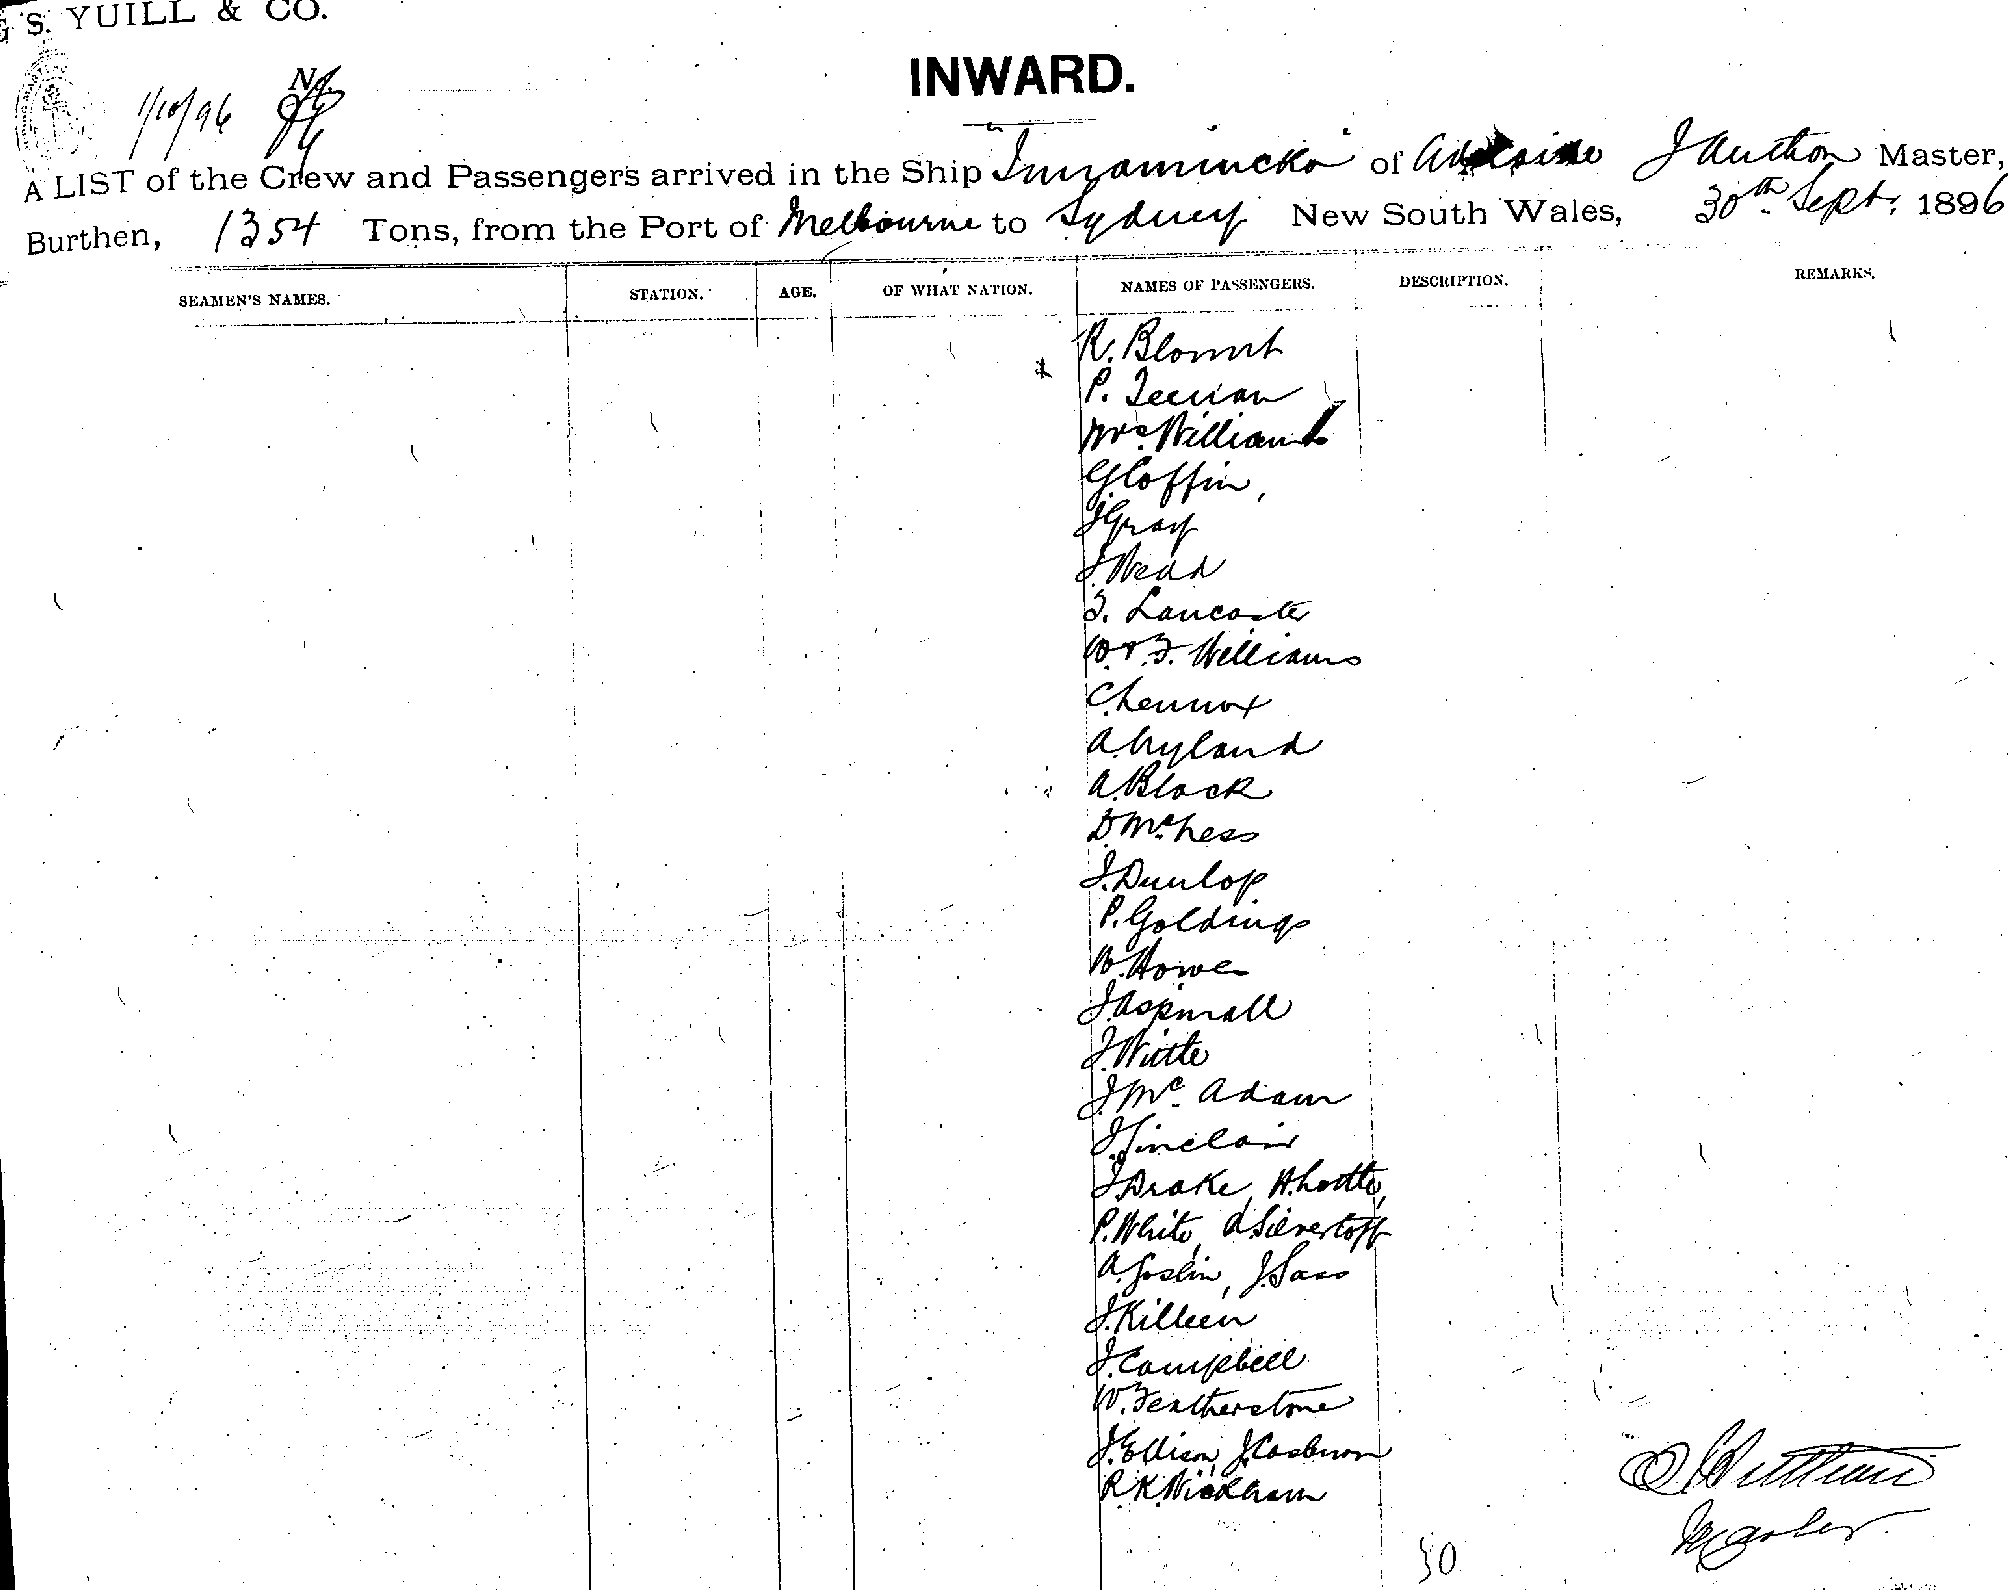 G. S. YUILL & CO.
1/10/96
INWARD.
A LIST of the Crew and Passengers arrived in the Ship Innamincka of Adelaide J Master,
Burthen, 1354 Tons, from the Port of Melbourne to Sydney New South Wales, 30th Sept. 1896
SEAMEN'S NAMES. STATION. AGE. OF WHAT NATION. NAMES OF PASSENGERS. DESCRIPTION. REMARKS.
R. Blount
P.
Mrs Williams
G. Coffin,
J Gray
J. Wedd
F. Lancaster
W. & F. Williams
C. Lennox
A. Hyland
A. Black
D. McLess
J. Dunlop
P. Goldings
W. Howe
J. Aspinall
J. Witte
J. Mc Adam
J. Sinclair
J. Drake, H. Lottle,
P. White,
A. Goslin, J. Sass
J. Killeen
J. Campbell
W. Featherstone
J. Ellison, J.
R. K. Wickham
Master
30